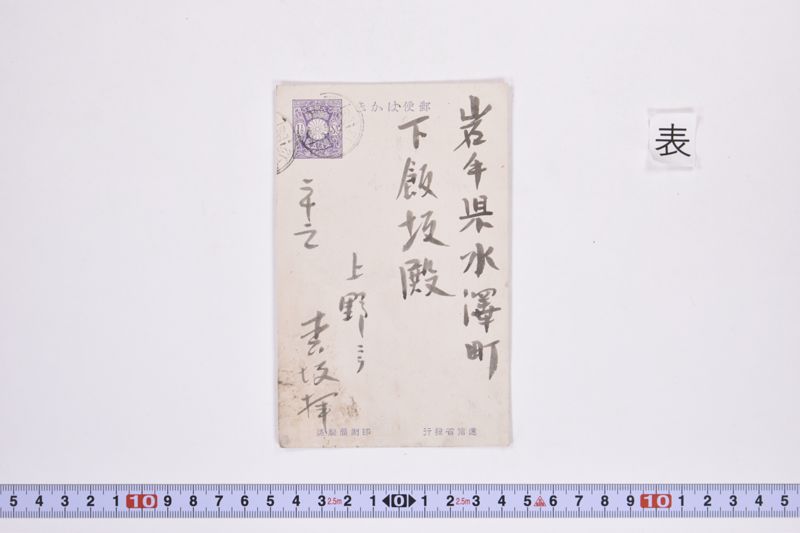 郵便はがき
岩手県水澤町
下飯坂殿
上野ニテ
表
逓信省発行
印刷局製造
5 4 3 2 1 10 9 8 7 6 5 4 3 2.5m 2 1 0 1 2 2.5m 3 4 5 6 7 8 9 10 1 2 3 4 5